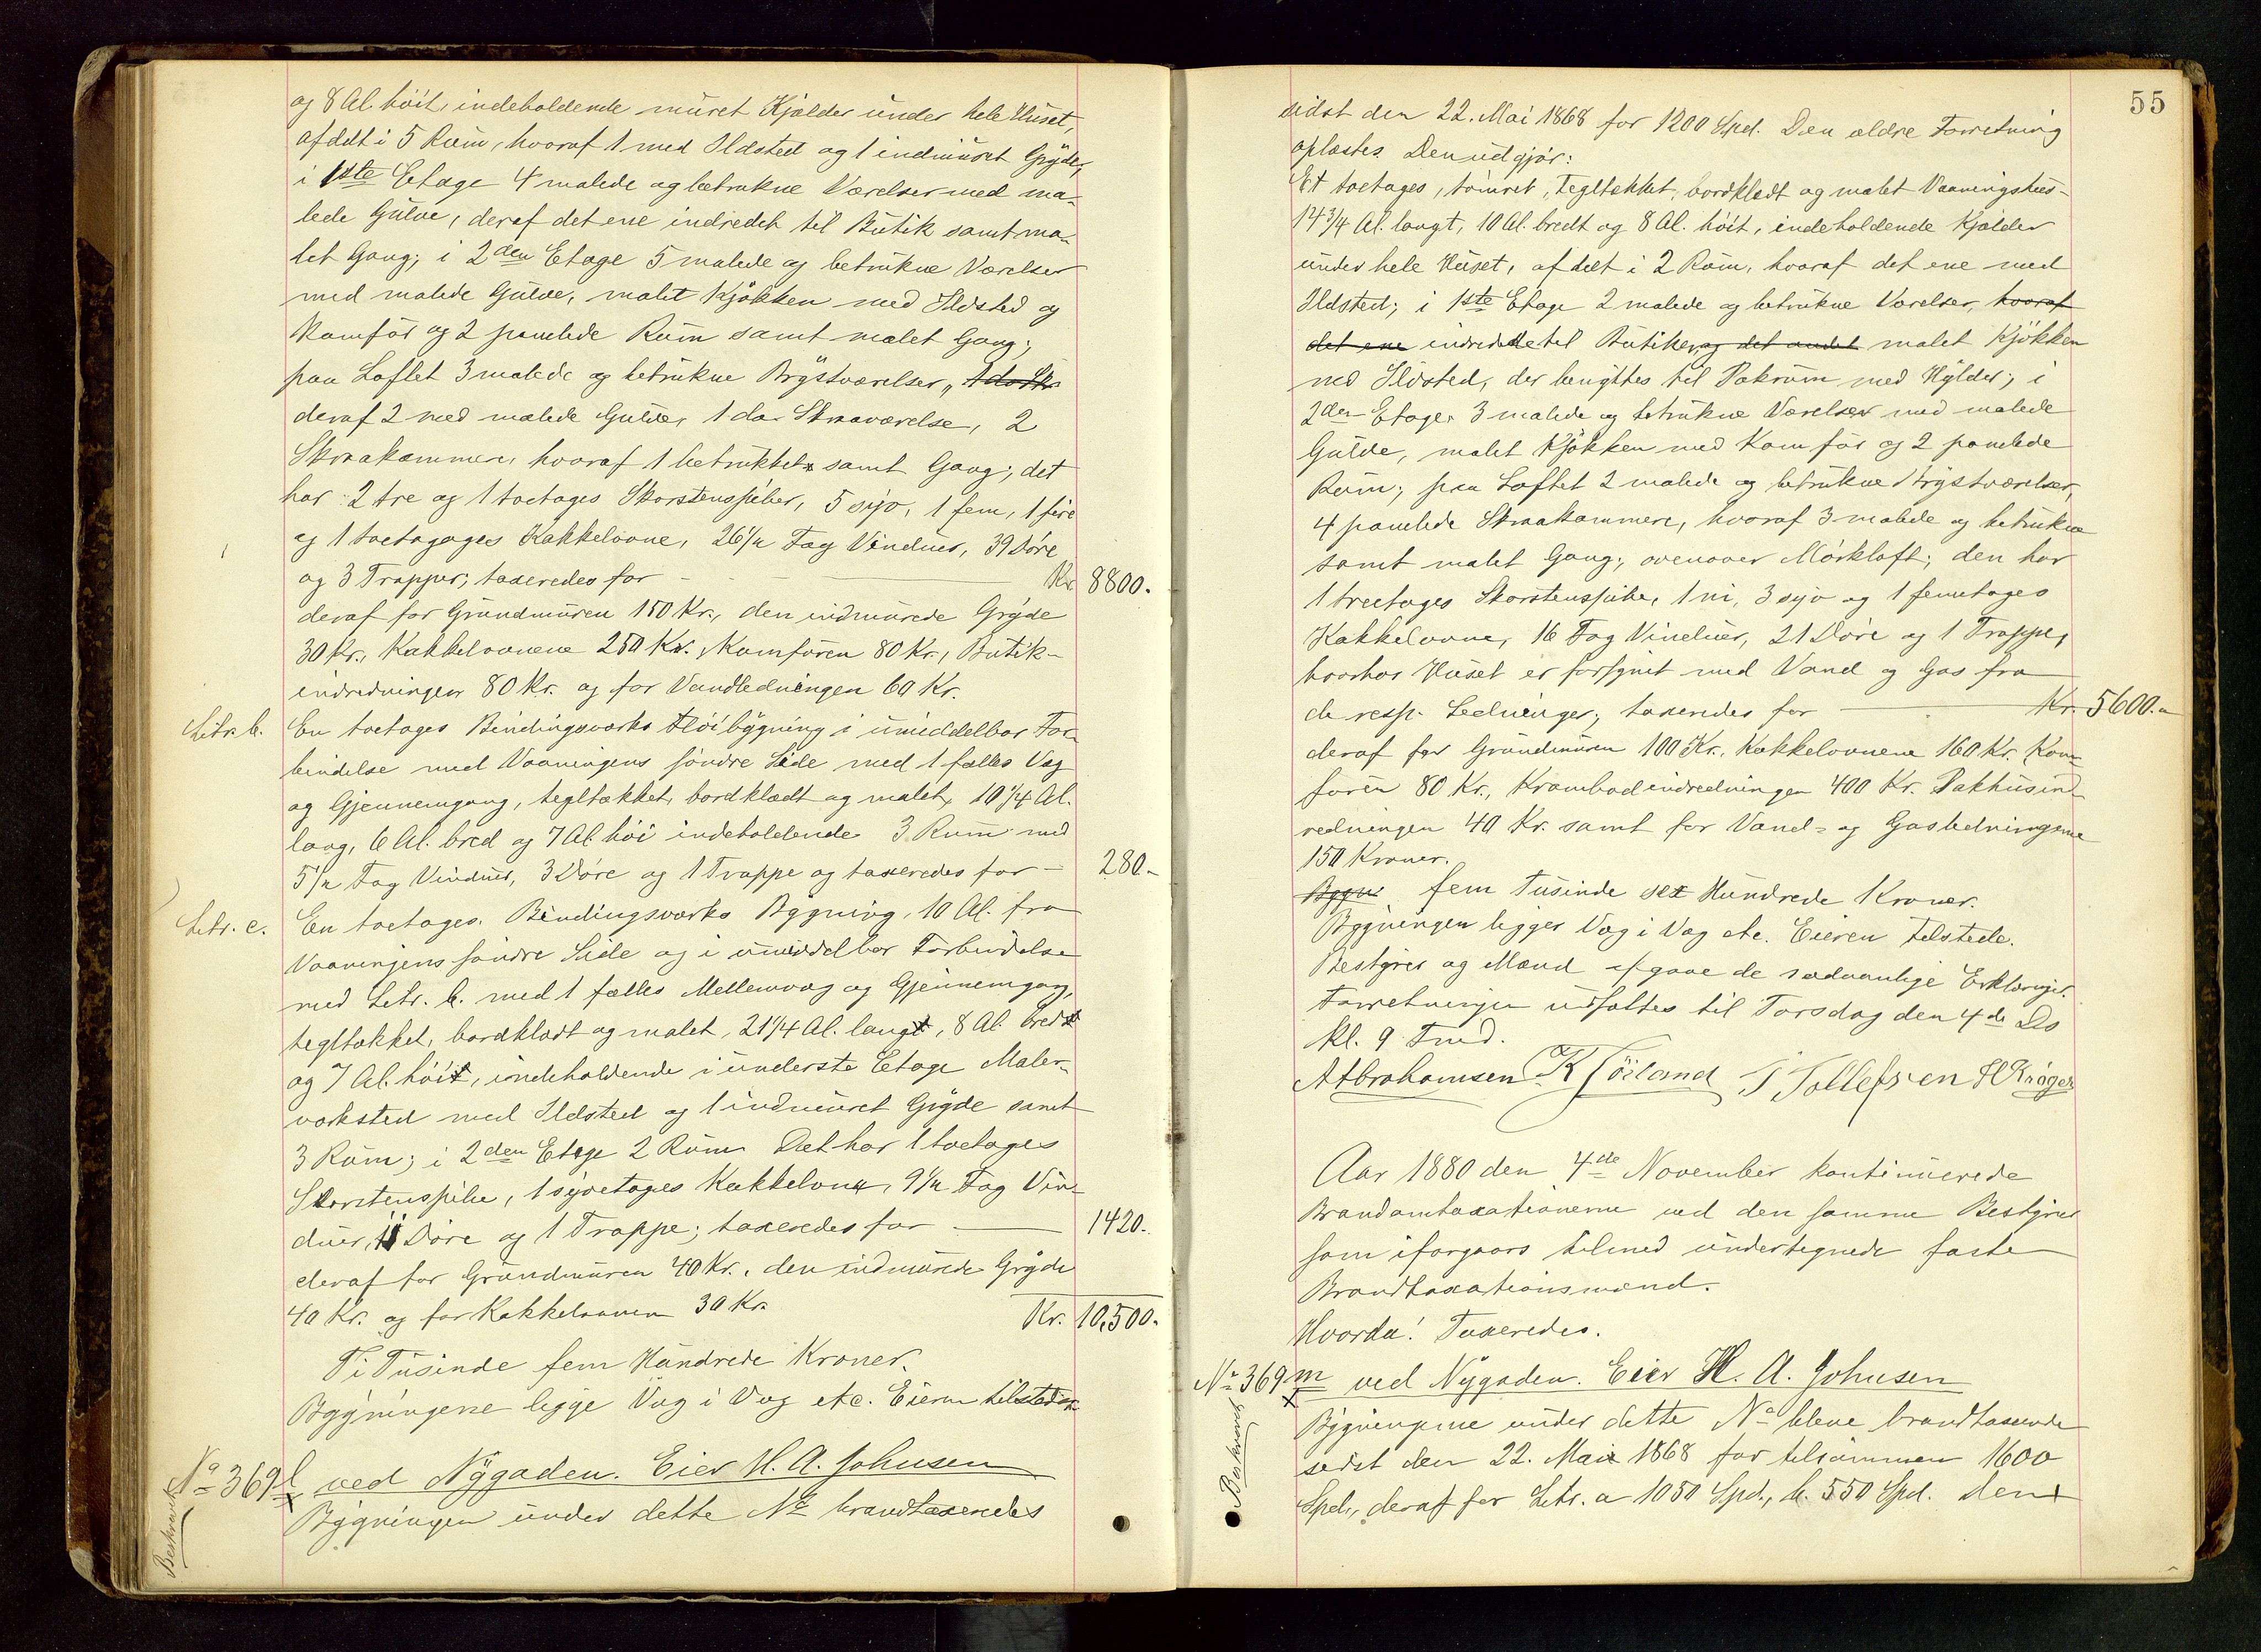 og 8 Al. höit, indeholdende muret Kjælder under hele Huset,
afdelt i 5 Rum, hvoraf 1 med Ildsted og 1 indmuret Gryde,
i 1ste Etage 4 malede og betrukne Værelser med ma-
lede Gulve, deraf det ene indredet til Butik samt ma-
let Gang; i 2den Etage 5 malede og betrukne Værelser
med malede Gulve, malet Kjøkken med Ildsted og
Komför og 2 panelede Rum samt malet Gang;
paa Loftet 3 malede og betrukne Brystværelser,
deraf 2 med malede Gulve, 1 do. Skraaværelse, 2
Skraakammere, hvoraf 1 betrukket samt Gang; det
har 2 tre og 1 toetages Skorstenspiber, 5 syv, 1 fem, 1 fire
og 1 toetagages Kakkelovne, 26 1/2 Fag Vinduer, 39 Döre
og 3 Trapper; taxeredes for - - - Kr. 8800.
deraf for Grundmuren 150 Kr., den indmurede Gryde
30 Kr., Kakkelovnene 250 Kr., Komfüren 80 Kr., Butik-
indredningen 80 Kr. og for Vandledningen 60 Kr.
Litr. b. En toetages Bindingsværks Flöibygning i umiddelbar For-
bindelse med Vaaningens söndre Side med 1 fælles Væg
og Gjennemgang, tegltækket, bordklædt og malet, 10 1/4 Al.
lang, 6 Al. bred og 7 Al. höi indeholdende 3 Rum med
5 1/2 Fag Vinduer, 3 Döre og 1 Trappe og taxeredes for - 280.-
Litr. c. En toetages Bindingsværks Bygning, 10 Al. fra
Vaaningens söndre Side og i umiddelbar Forbindelse
med Litr. b. med 1 fælles Mellemvæg og Gjennemgang,
tegltækket, bordklædt og malet, 21 1/4 Al. langt, 8 Al. bredt
og 7 Al. höit, indeholdende i underste Etage Maler-
værksted med Ildsted og 1 indmuret Gryde samt
3 Rum; i 2den Etage 2 Rum. Det har 1 toetages
Skorstenspibe, 1 syvetages Kakkelovn, 9 1/2 Fag Vin-
duer, 11 Döre og 1 Trappe; taxeredes for - 1420.
deraf for Grundmuren 40 Kr., den indmurede Gryde
40 Kr. og for Kakkelovnen 30 Kr.
Kr. 10,500.
Ti Tusinde fem Hundrede Kroner.
Bygningerne ligge Væg i Væg etc. Eieren tilstede.
No 369 l ved Nygaden. Eier H. A. Johnsen
Bygningen under dette No brandtaxeredes
Beskrevet
55
sidst den 22. Mai 1868 for 1200 Spd. Den ældre Forretning
oplæstes. Den udgjør:
Et toetages, tömret, tegltækket, bordklædt og malet Vaaningshus
14 3/4 Al. langt, 10 Al. bredt og 8 Al. höit, indeholdende Kjælder
under hele Huset, afdelt i 2 Rum, hvoraf det ene med
Ildsted; i 1ste Etage 2 malede og betrukne Værelser, hvoraf
det ene indredede til Butiker, og det andet malet Kjökken
med Ildsted, der benyttes til Pakrum med Hylder; i
2den Etage 3 malede og betrukne Værelser med malede
Gulve, malet Kjökken med Komför og 2 panelede
Rum; paa Loftet 2 malede og betrukne Brystværelser,
4 panelede Skraakammere, hvoraf 3 malede og betrukne
samt malet Gang; ovenover Mörkloft; den har
1 treetages Skorstenspibe, 1 ni, 3 syv og 1 femetages
Kakkelovne, 16 Fag Vinduer, 21 Döre og 1 Trappe,
hvorhos Huset er forsynet med Vand og Gas fra
de resp. Ledninger; taxeredes for - Kr. 5600.-
deraf for Grundmuren 100 Kr., Kakkelovnene 160 Kr. Kom-
furen 80 Kr., Krambodindredningen 400 Kr. Pakhusind-
redningen 40 Kr. samt for Vand- og Gasledningerne
150 Kroner.
Bygn fem Tusinde sex Hundrede Kroner.
Bygningen ligger Væg i Væg etc. Eieren tilstede.
Bestyrer og Mænd afgave de sædvanlige Erklæringer.
Forretningen udsattes til Torsdag den 4de Ds
Kl. 9 Fmd.
A Abrahamsen K Töiland T Tollefsen H Kröger
Aar 1880 den 4de November kontinuerede
Brandomtaxationerne ved den samme Bestyrer
som iforgaars tilmed undertegnede faste
Brandtaxationsmænd.
Hvorda! Taxeredes.
No 369 m ved Nygaden. Eier H. A. Johnsen
Bygningerne under dette No bleve brandtaxerede
sidst den 22. Mai 1868 for tilsammen 1600
Spd., deraf for Litr. a 1050 Spd., b. 550 Spd. Den
Beskrevet